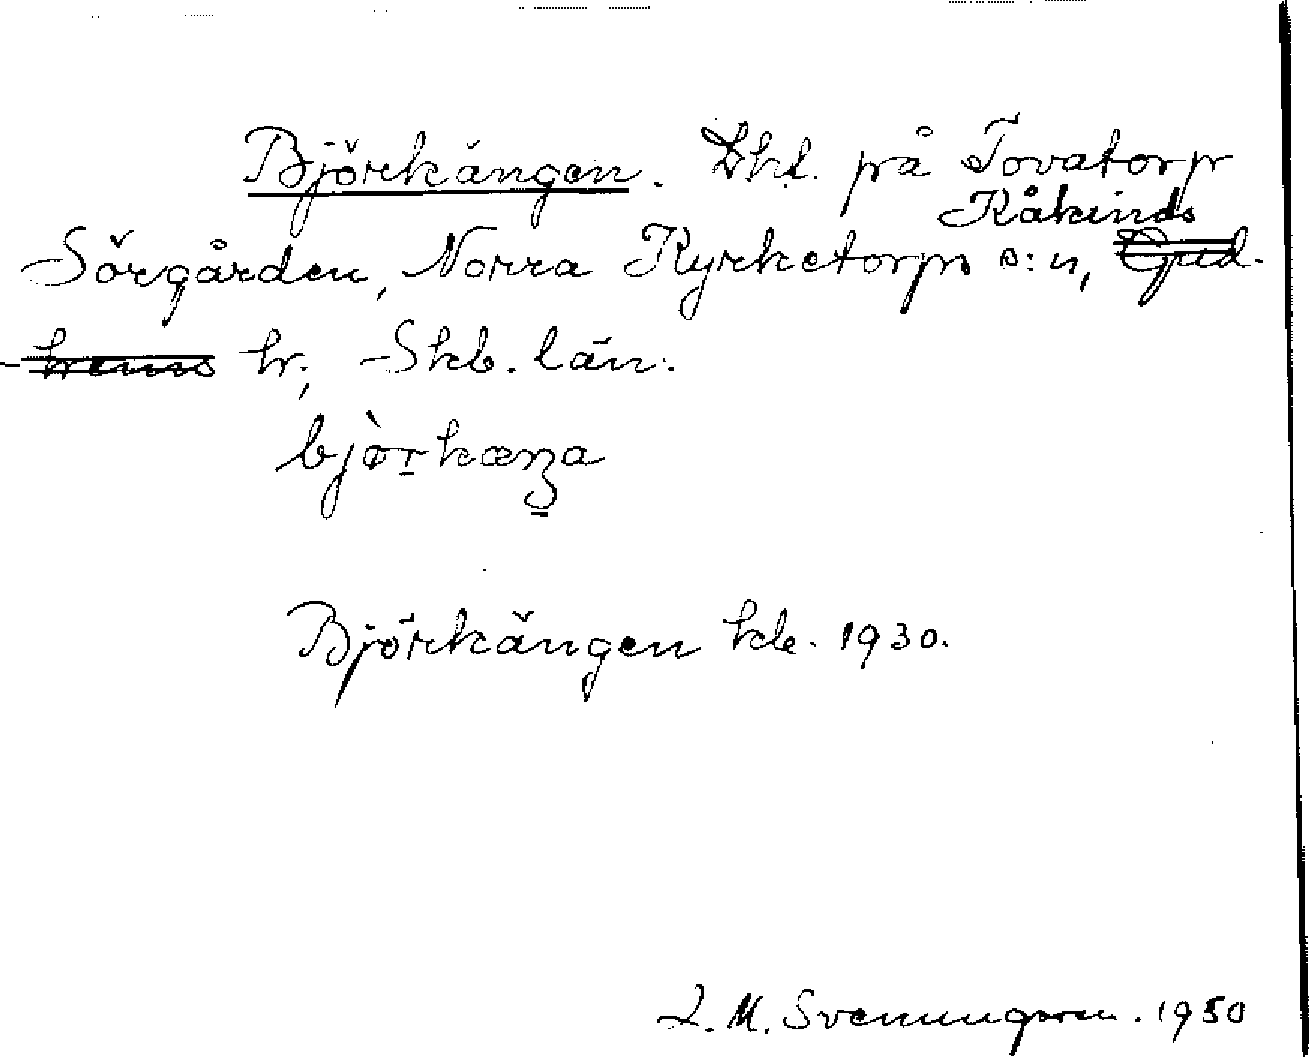 Björkängen. Lht. på Tovatorp
Kåkinds
Sörgården, Norra Kyrketorps s:n, Gud-
hems hr, Skb. län.
bjòrkæŋa
Björkängen kb. 1930.
L. M. Svenungsson. 1950